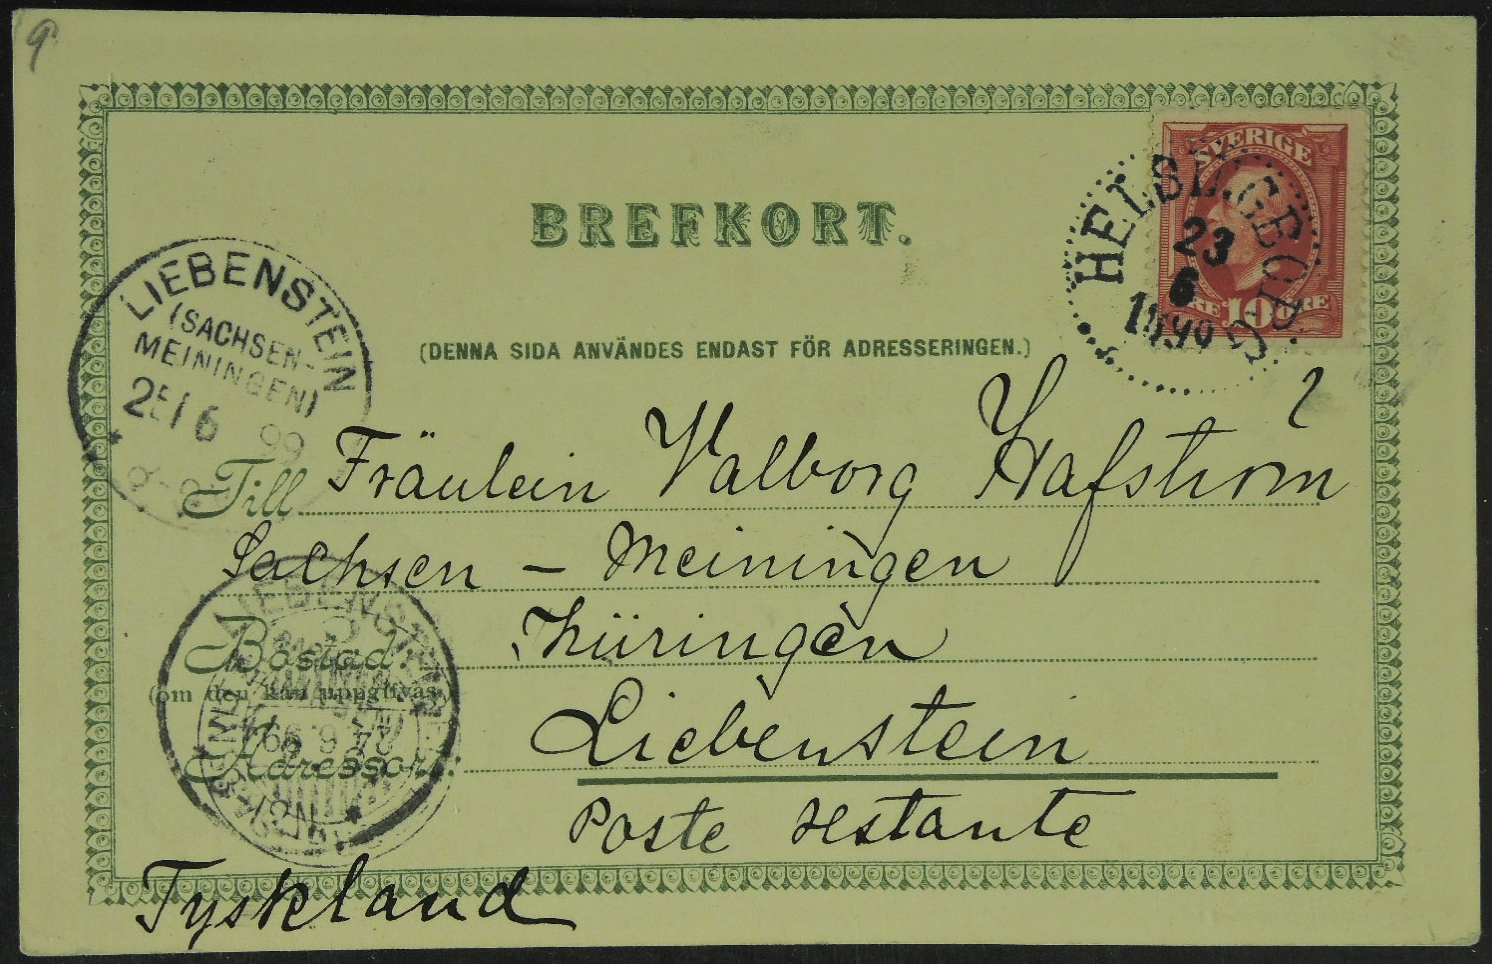 9
BREFKORT.
SVERIGE
10 ÖRE
HELSINGBORG
23
6
1899
(DENNA SIDA ANVÄNDES ENDAST FÖR ADRESSERINGEN.)
LIEBENSTEIN
(SACHSEN-
MEININGEN)
25/6 99
Till Fräulein Valborg Hafström
Sachsen – Meiningen
Bostad: Thüringen
(om den kan uppgifvas)
Adressort: Liebenstein
LIEBENSTEIN
Poste restante
Tyskland